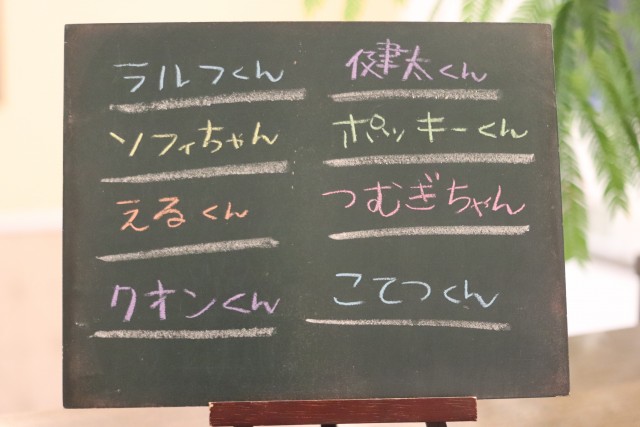 ラルフくん
健太くん
ソフィちゃん
ポッキーくん
えるくん
つむぎちゃん
クオンくん
こてつくん